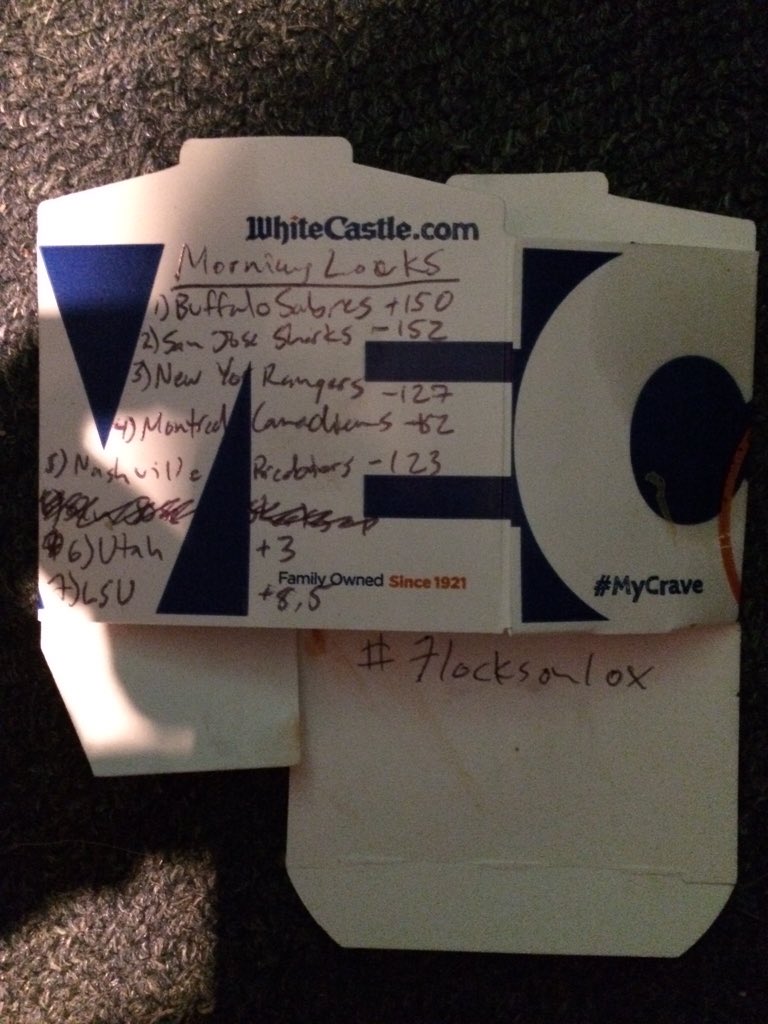 WhiteCastle.com
Morning Locks
1) Buffalo Sabres +150
2) San Jose Sharks -152
3) New Yor Rangers -127
4) Montreal Canadiens
5) Nashville Predators -123
6) Utah +3
Family Owned Since 1921
7) LSU +8,5
#MyCrave
# 7locksonlox